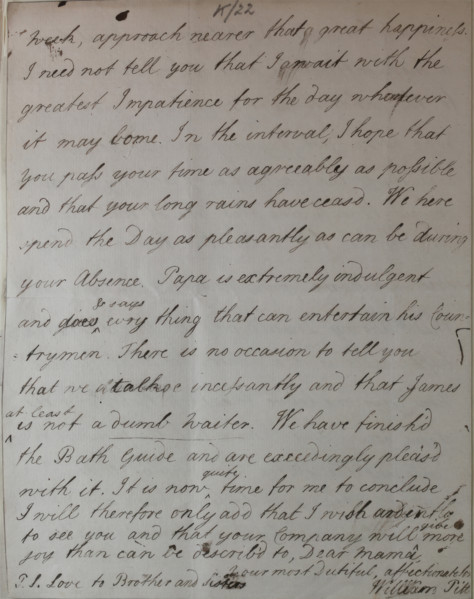 K/22
Week, approach nearer that great happiness.
I need not tell you that I wait with the
greatest Impatience for the day whenever
it may come. In the interval, I hope that
you paſs your time as agreeably as poſsible
and that your long rains have ceasd. We here
spend the Day as pleasantly as can be during
your Absence. Papa is extremely indulgent
& says
and does evry thing that can entertain his Coun-
-trymen. There is no occasion to tell you
that we talk inceſsantly and that James
at least
is not a dumb waiter. We have finish'd
the Bath Guide and are exceedingly pleas'd
quite
with it. It is now time for me to conclude
I will therefore only add that I wish ardently
to see you and that your Company will give more
joy than can be describ'd to, Dear Mama,
your most Dutiful, affectionate
P.S. Love to Brother and Sisters William Pitt